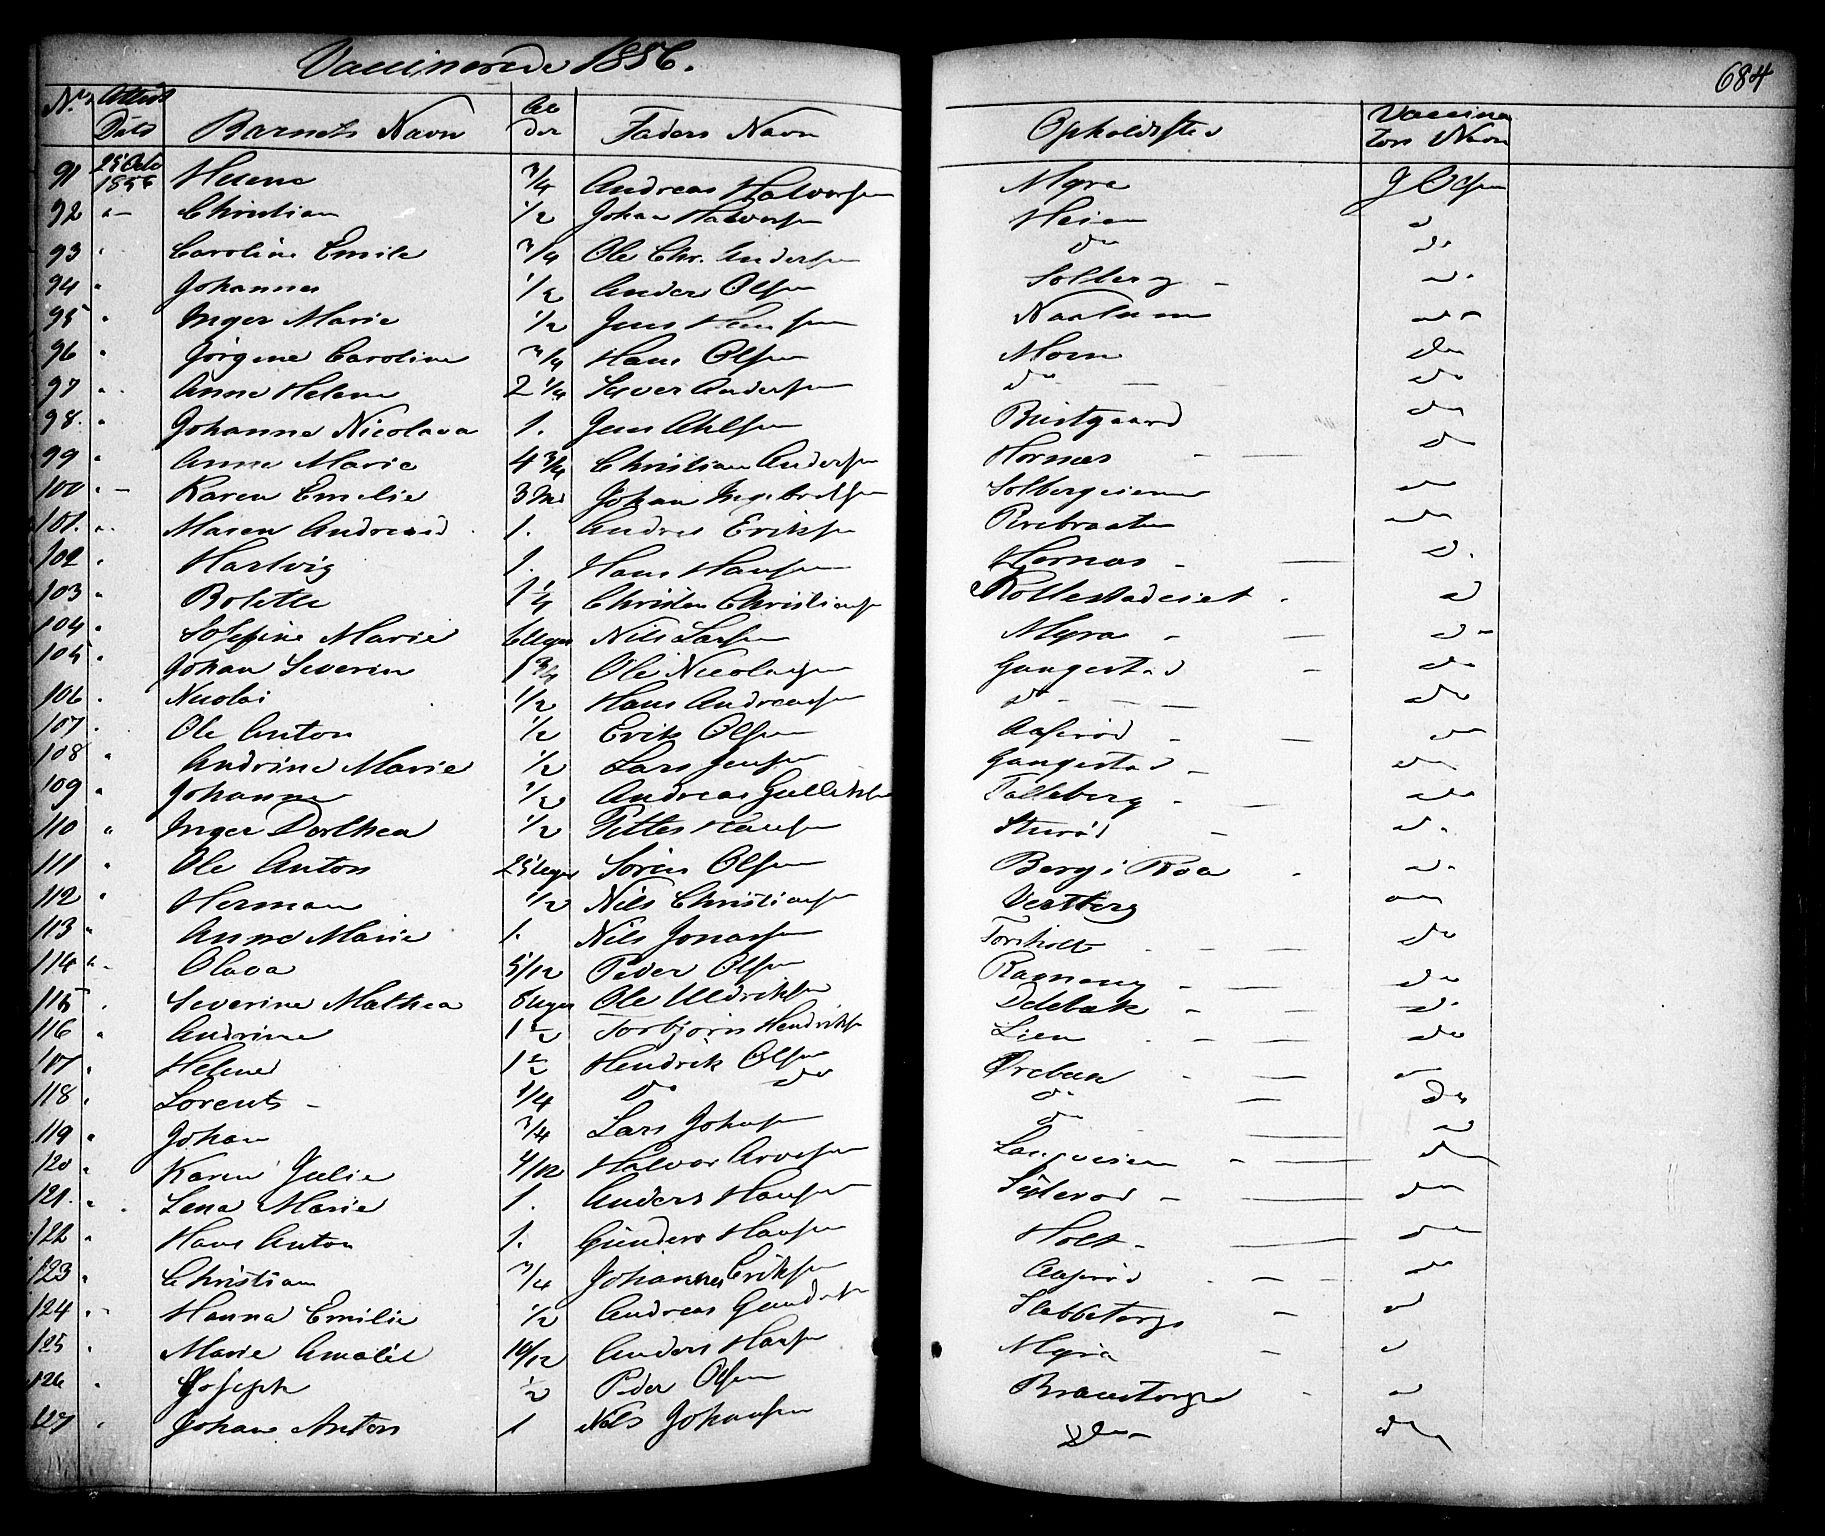 Vaccinerede 1856.
684
No. Attest Dato Barnets Navn Alder Faders Navn Opholdssted Vaccinators Navn
91 25 Octo 1856 Helene 3/4 Andreas Halvorsen Myre J Olsen
92 " Christian 1/2 Johan Halvorsen Heien d
93 " Caroline Emilie 3/4 Ole Chr. Andersen do do
94 " Johannes 1/2 Anders Olsen Solberg - d.
95 " Inger Marie 1/2 Jens Hansen Naalum do
96 " Jörgine Caroline 3/4 Hans Olsen Moen do
97 " Anne Helene 2 1/4 Syver Andersen do do
98. " Johanne Nicolava 1. Jens Ahlsen do
99 " Anne Marie 4 3/4 Christian Andersen Hornæs - do
100 " Karen Emelie 3 Md Johan Ingebretsen Solbergeiene do
101. " Maren Andrea 1. Andreas Eriksen do
102 " Hartvig 1. Hans Hansen Hornæs - d.
103 " Bolette 1 1/4 Christen Christiansen Kollestadeiet . d
104 " Josefine Marie 6 Uger Nils Larsen Myra - d
105 " Johan Severin 1 3/4 Ole Nicolaysen Gangestad - do
106 " Nicolai 1/2 Hans Andreassen do - do
107 " Ole Anton 1/2 Erik Olsen Aaserød - do
108 " Andrine Marie 1/2 Lars Jensen Gangestad - do
109 " Johanne 1/2 Andreas Gulliksen Falleberg - do
110 " Inger Dorthea 1/2 Petter Hansen - d.
111 " Ole Anton 25 Uger Sören Olsen Berg i Roa . d.
112 " Herman 1/2 Nils Christiansen do
113 " Anne Marie 1. Nils Jonassen Torsholt - do
114 " Olava 5/12 Peder Olsen - do
115 " Severine Mathea 8 Uger Ole Uldriksen Delebæk - d.
116 " Andrine 1 1/2 Torbjörn Hendriksen Lien - do
117 " Helene 1 1/2 Hendrik Olsen - do
118 " Lorents - 1/4 do do do do
119 " Johan 3/4 Lars Johnsen do d
120 " Karen Julie 4/12 Halvor Arvesen - do
121. " Lena Marie 1. Anders Hansen - do
122 " Hans Anton 1. Gunders Hansen Holt - do
123 " Christian 3/4 Johannes Eriksen Aaserød - do
124 " Hanna Emilie 1/2 Andreas Gundersen - d
125 " Marie Amalie 10/12 Anders Hansen Myra - d
126 " Joseph 1/2 Peder Olsen d
127 " Johan Anton 1 Nils Johansen do do